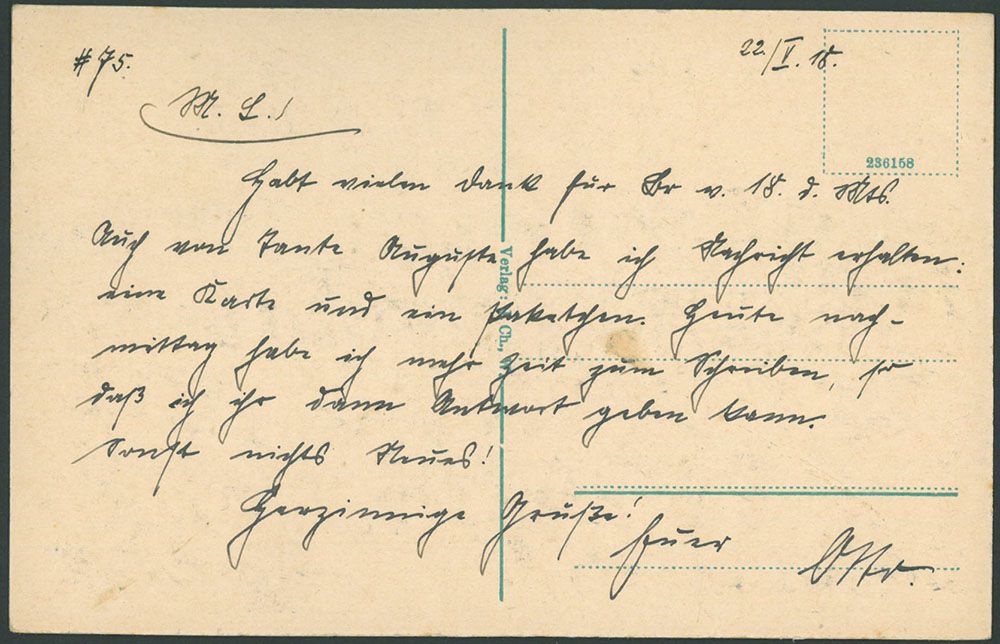 #75.
22./V. 18.
M. L.!
236158
Habt vielen Dank für Br v. 18. d. Mts.
Auch von Tante Auguste habe ich Nachricht erhalten:
eine Karte und ein Paketchen. Heute nach-
mittag habe ich mehr Zeit zum Schreiben, so
daß ich ihr dann Antwort geben kann.
Sonst nichts Neues!
Herzinnige Grüße!
Euer
Otto.
Verlag: Ch.,